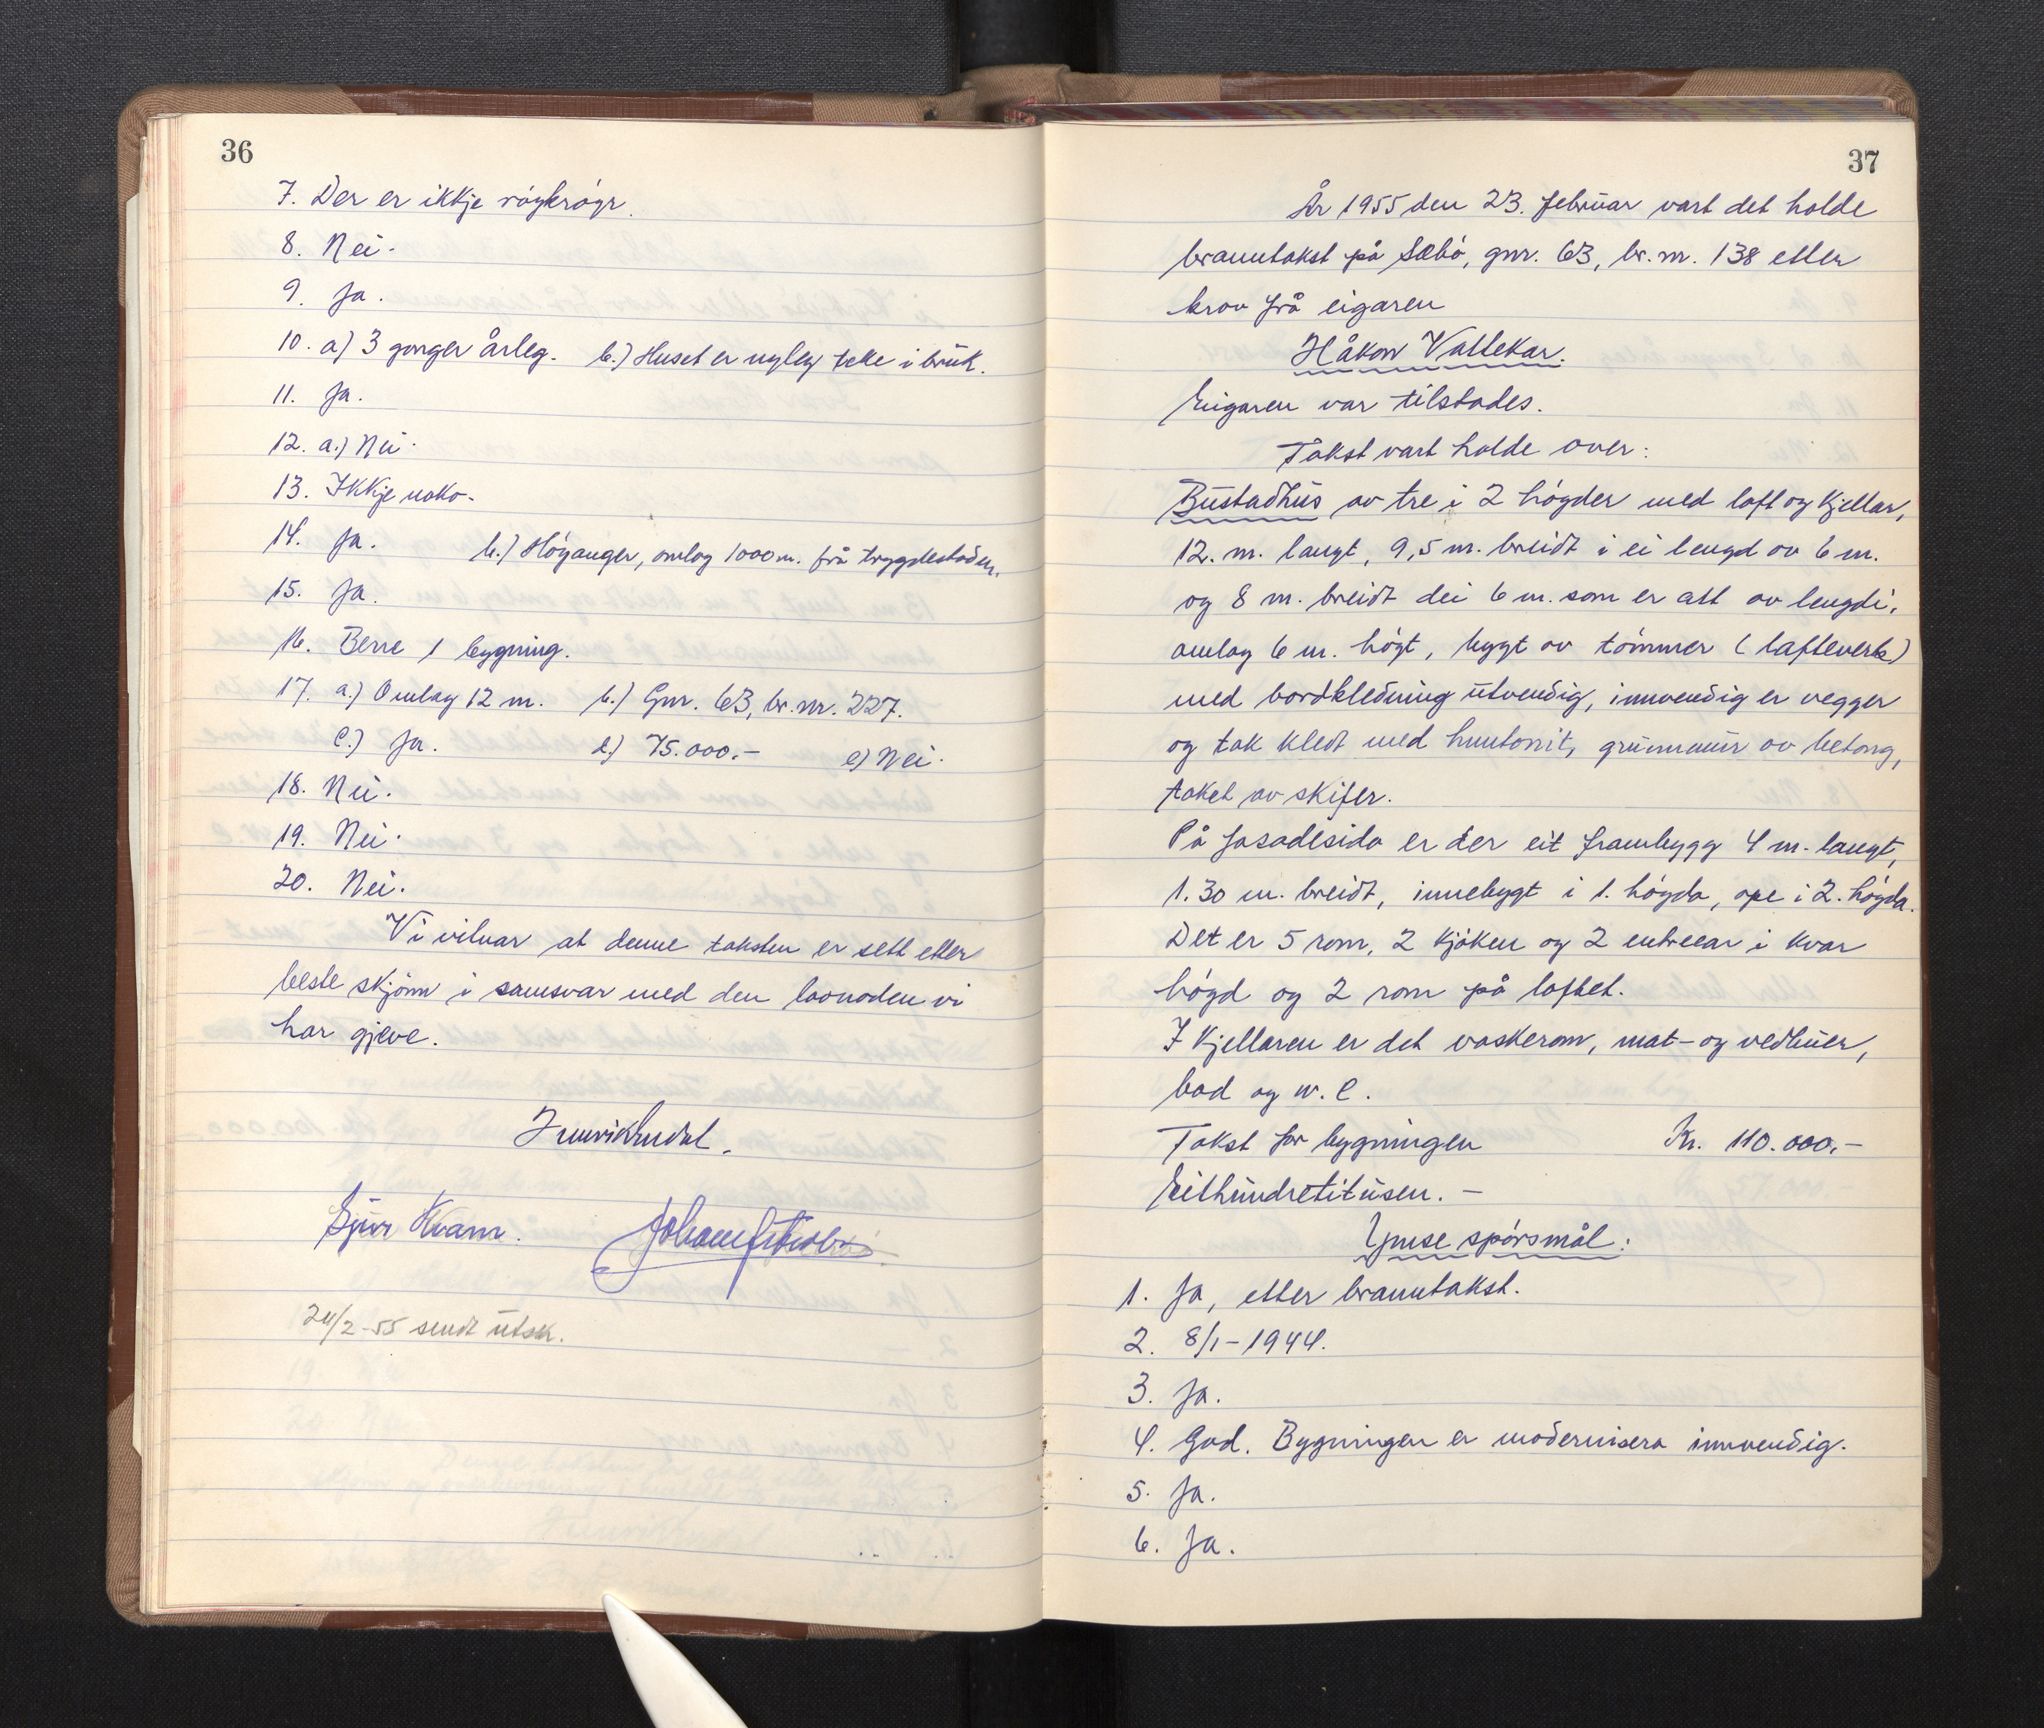 36
7. Der er ikkje röykrör.
8. Nei.
9. Ja.
10. a) 3 gonger årleg. b.) Huset er nyleg teke i bruk.
11. Ja.
12. a.) Nei.
13. Ikkje noko.
14. Ja. b.) Höyanger, omlag 1000 m. frå trygdestaden.
15. Ja.
16. Berre 1 bygning.
17. a.) Omlag 12 m. b.) Gnr. 63, br. nr. 227.
c.) Ja. d.) 75.000.- e) Nei.
18. Nei.
19. Nei.
20. Nei.
Vi vitnar at denne taksten er sett etter
beste skjönn i samsvar med den lovnaden vi
har gjeve.
Sjur Kvam.
24/2-55 sendt utskr.
37
År 1955 den 23. februar vart det halde
branntakst på Sæbö, gnr. 63, br. nr. 138 etter
krav frå eigaren
Håkon Vallekar.
Eigaren var tilstades.
Takst vart halde over:
Bustadhus av tre i 2 högder med loft og kjellar,
12. m. langt, 9,5 m. breidt i ei lengd av 6 m.
og 8 m. breidt dei 6 m. som er att av lengdi,
omlag 6 m. högt, bygt av tömmer (lafteverk)
med bordkledning utvendig, innvendig er vegger
og tak kledt med huntonit, grunnmur av betong,
taket av skifer.
På fasadesida er der eit frambygg 4 m. langt,
1.30 m. breidt, innebygt i 1. högda, ope i 2. högda.
Det er 5 rom, 2 kjöken og 2 entreear i kvar
högd og 2 rom på loftet.
I kjellaren er det vaskerom, mat- og vedbuer,
bad og w.c.
Takst for bygningen Kr. 110.000.-
Eithundretitusen. -
Ymse spörsmål:
1. Ja, etter branntakst.
2. 8/1-1944.
3. Ja.
4. God. Bygningen er modernisera innvendig.
5. Ja.
6. Ja.